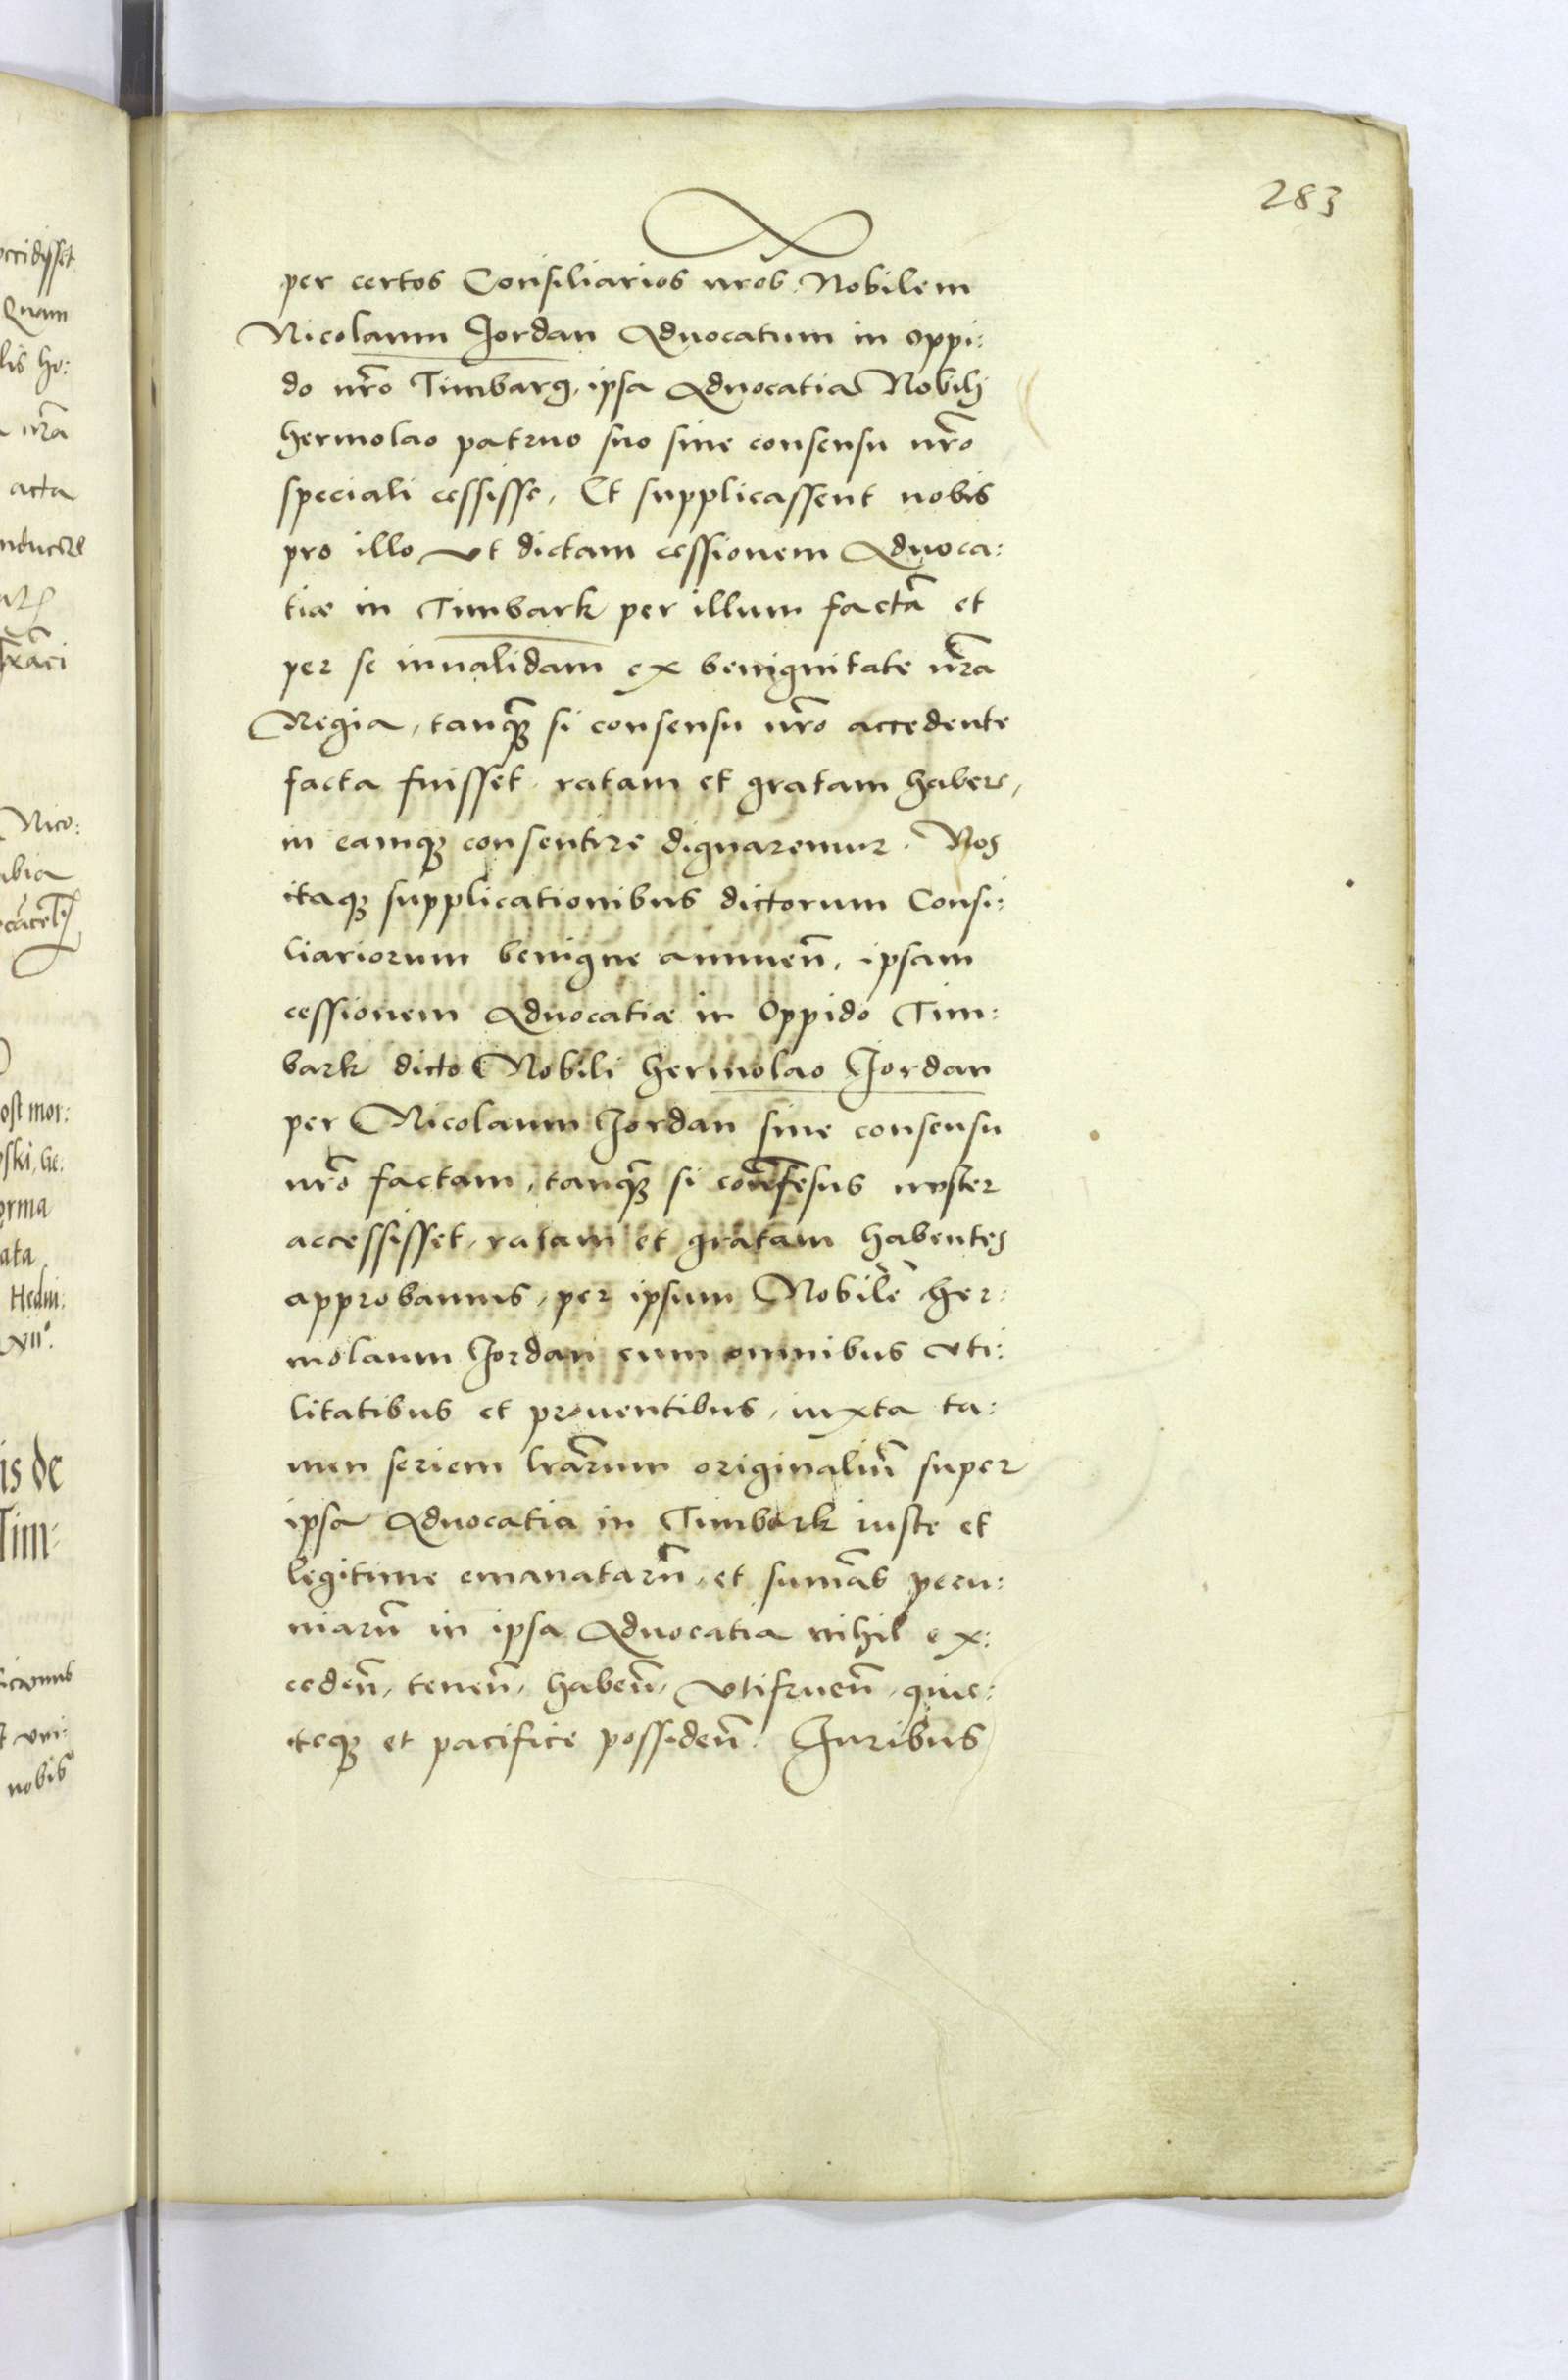 283
per certos Consiliarios nr̃os Nobilem
Nicolaum Jordan Aduocatum in oppi:
do nr̃o Timbarg, ipsa Aduocatia Nobilj
hermolao patruo suo sine consensu nr̃o
speciali cessisse, Et supplicassent nobis
pro illo vt dictam cessionem Aduoca:
tiæ in Timbark per illum factã et
per se inualidam ex benignitate nr̃a
Regia, tanq̃ si consensu nr̃o accedente
facta fuisset, ratam et gratam habere,
in eamq; consentire dignaremur. Nos
itaq; supplicationibus dictorum Consi:
liariorum benigne annueñ, ipsam
cessionem Aduocatiæ in Oppido Tim:
bark dicto Nobili hermolao Jordan
per Nicolaum Jordan sine consensu
nr̃o factam, tanq̃ si consẽsus noster
accessisset, ratam et gratam habentes
approbamus, per ipsum Nobilẽ her:
molaum Jordan cum omnibus vti:
litatibus et prouentibus, iuxta ta:
men seriem lrãrum originaliũ super
ipsa Aduocatia in Timbark iuste et
legitime emanatarũ, et sum̃as pecu:
niarũ in ipsa Aduocatia nihil ex:
cedeñ, teneñ, habeñ, vtifrueñ, quie:
teq; et pacifice possideñ. Juribus